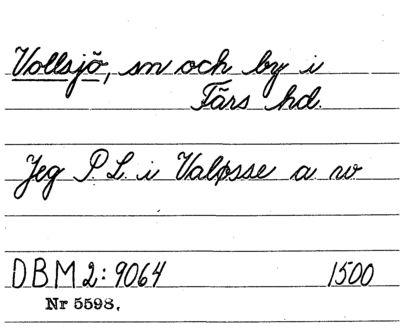 Vollsjö, sn och by i
Färs hd.
Jeg P. L. i Valøsse a w
DBM 2: 9064 1500
Nr 5598.